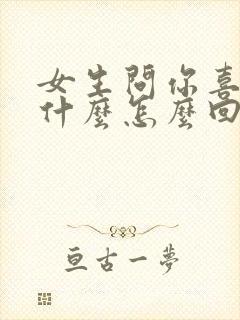 女生問你喜
什麼怎麼回
亘古一夢